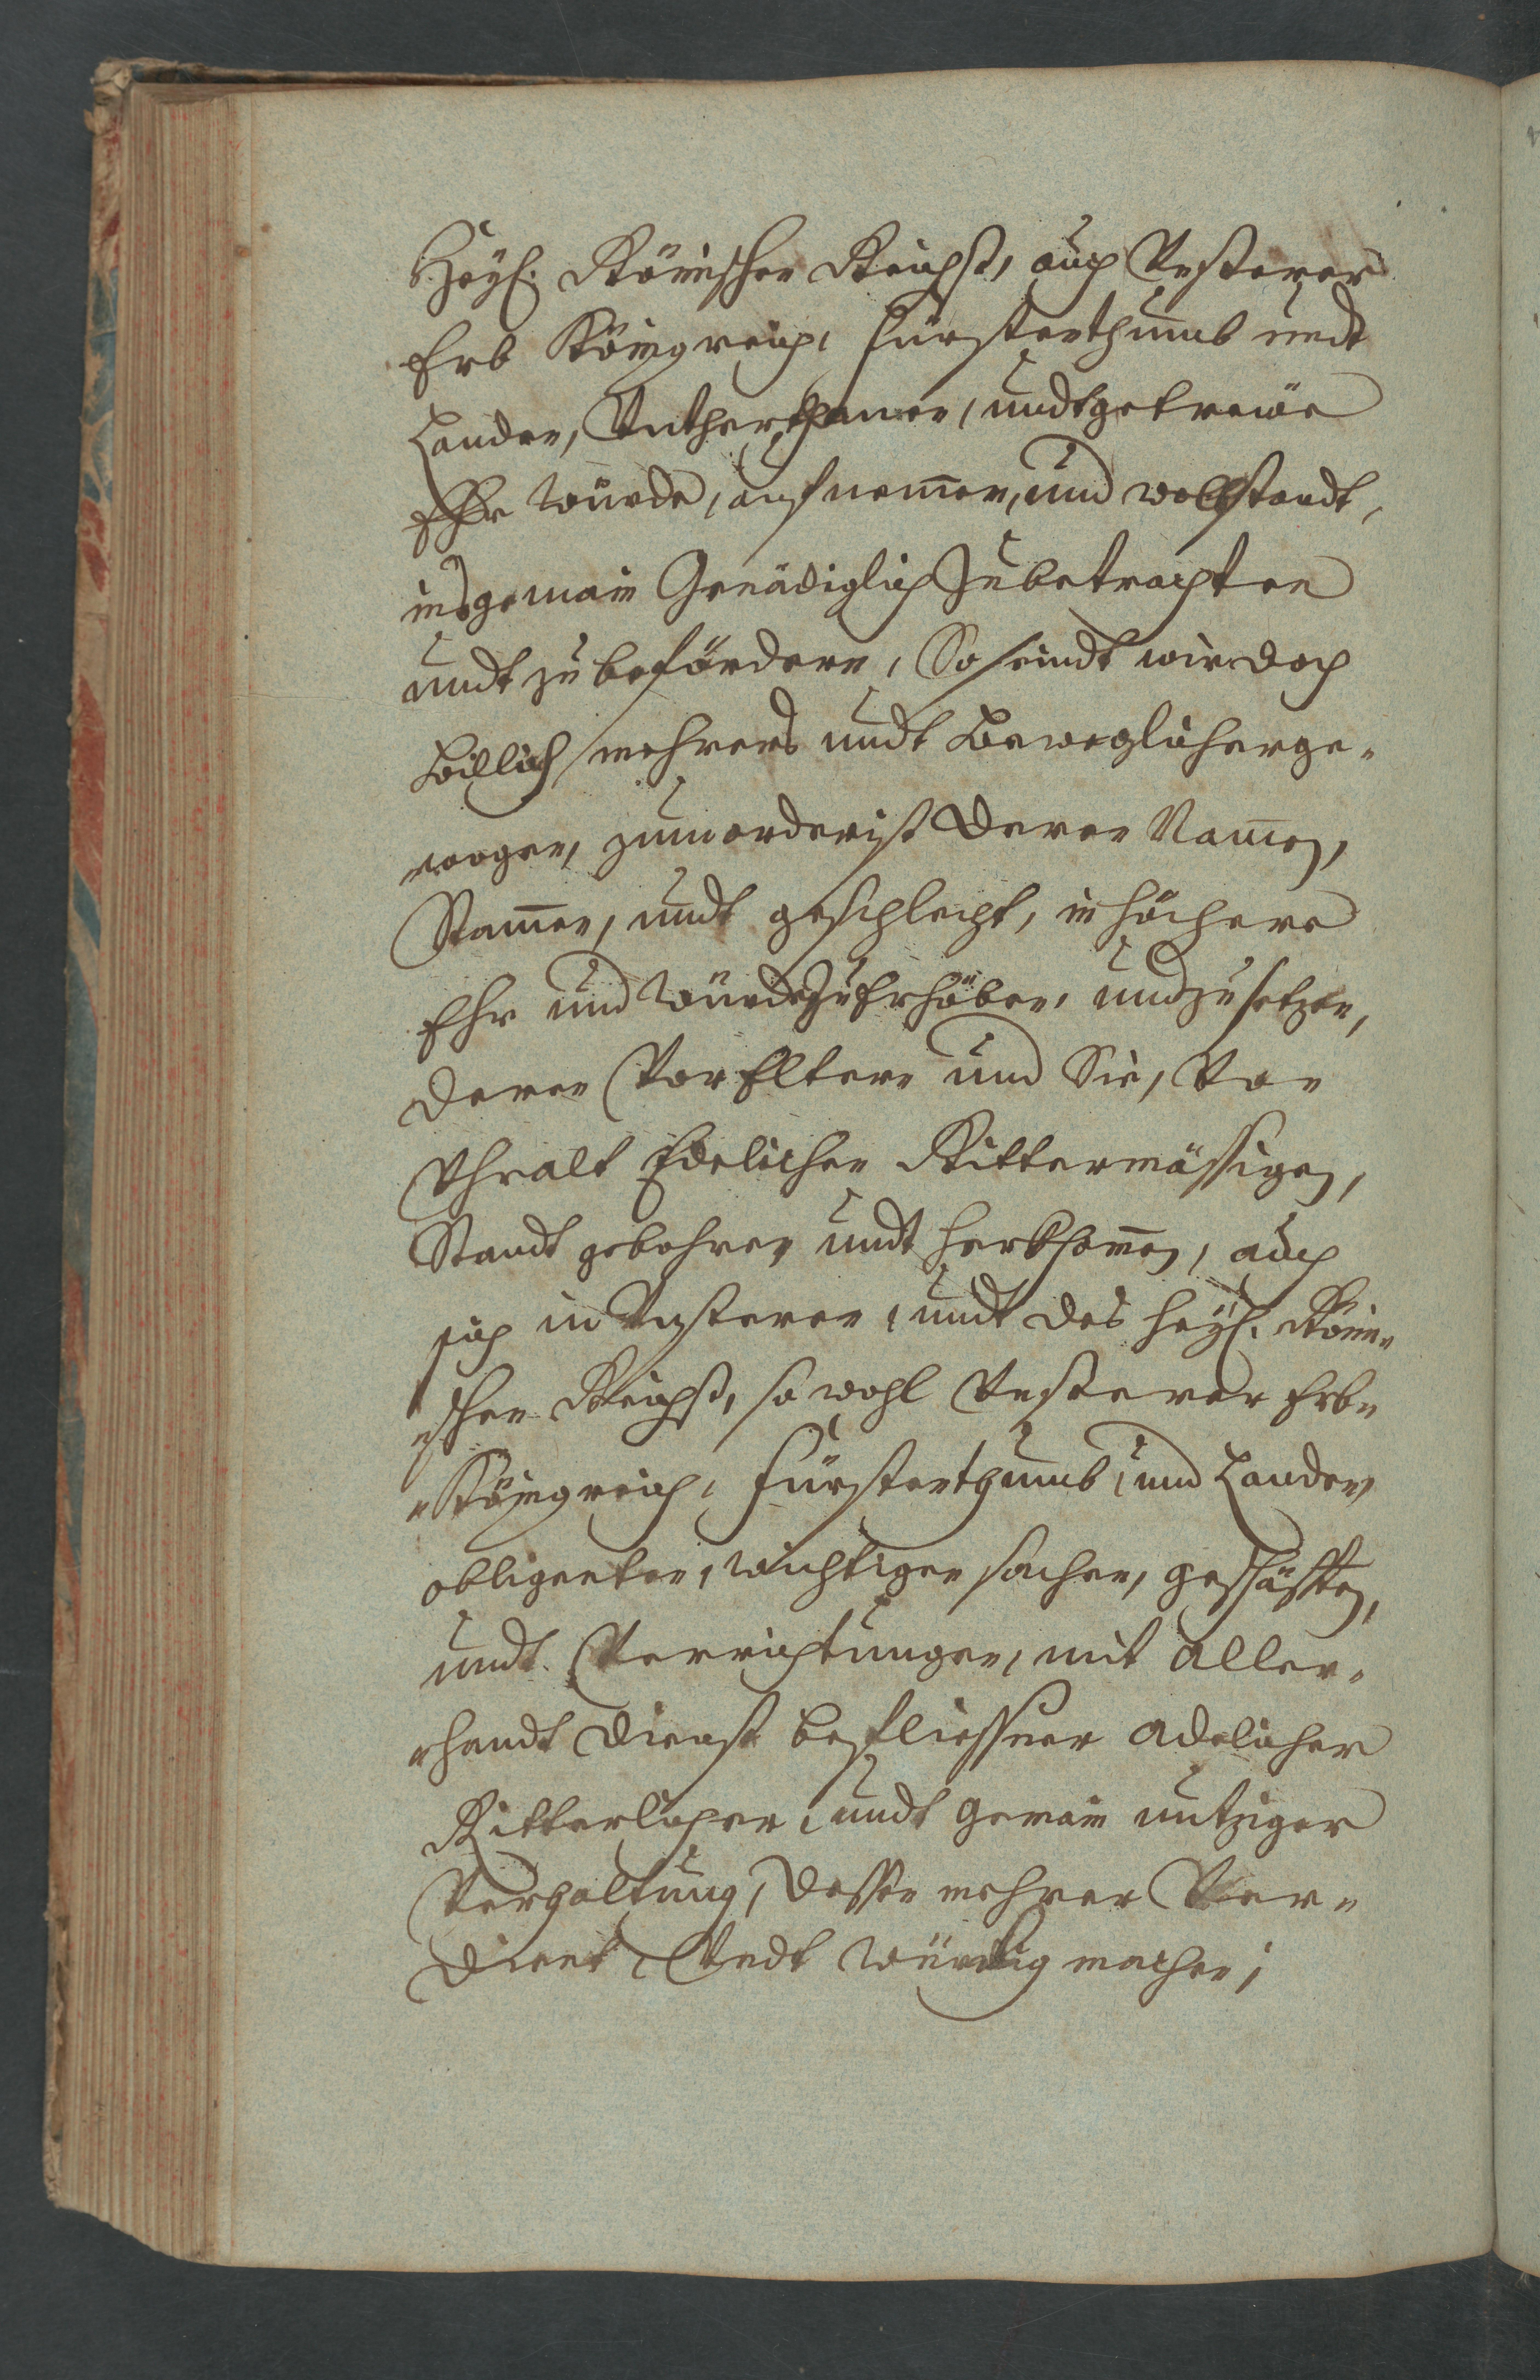 Heyl: Römischen Reichß, auch Vnßerer
Erb Königreich, Fürstenthumb undt
Landen, Vntherthanen, undt getreüe
Ehr würde, aufnemen, und wollstandt,
insgemain Genädiglich Zu betrachten
undt zu befördern, So seindt wir doch
Billich mehrers undt Beweglicher ge-
woogen, zumorderist deren Namen,
Stamen, undt geschlecht, in höchere
Ehr und würde Zu Erhöben, und zu setzen,
deren Vor Eltern und Sie, Von
Vhralt Edelichen Rittermässigen,
Standt gebohren undt herkhomen, auch
sich in Vnßeren, undt des heyl: Römi-
schen Reichß, so wohl Vnßerer Erb-
Königreich, Fürstenthumb, und Landen
obligenten, wichtigen sachen, geschäfften,
undt Verrichtungen, mit aller-
handt dienst beflissner adelicher
Ritterlichen, undt gemain nutziger
Verhaltung, dessen mehrer Ver-
dient, Vndt würdig machen;